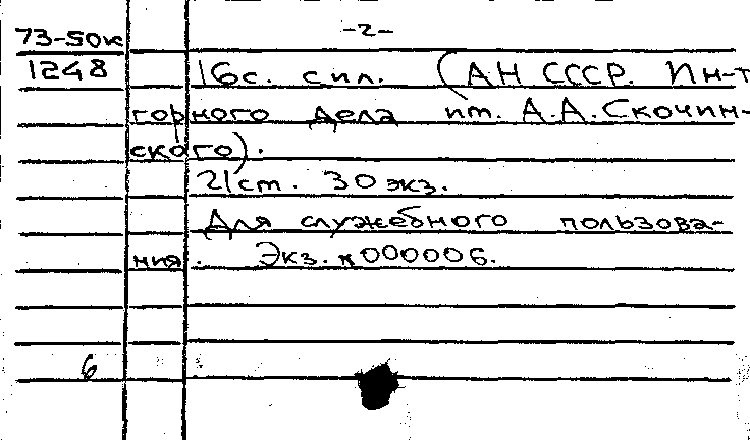 -2-
73-50к
1248 16с. с ил. (АН СССР. Ин-т
горного дела им. А.А.Скочин-
ского).
21см. 30 экз.
Для служебного пользова-
ния. Экз. №000006.
6